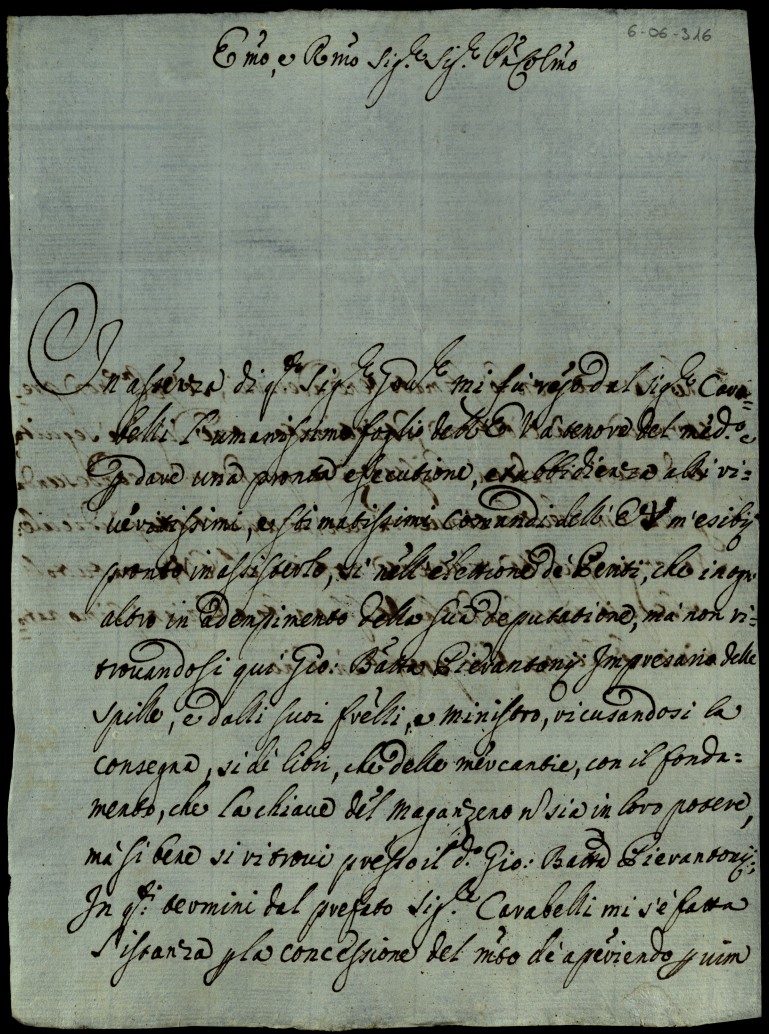 6-06-316
Emo, e Rmo Sig.re Sig.re Prõn Colmo
In assenza di q.sto Sig.re Gov.re mi fù reso dal Sig.re Cara=
belli l'umanissimo foglio dell'E V à tenore del med.o e
p dare una pronta esecutione, et obbidienza alli ri=
veritissimi, e stimatissimi comandi dell'E V m'esibij
pronto in assisterlo, si nell'elettione de Periti, che in ogn'
altro in adempimento della sua deputatione, mà non ri=
trovandosi qui Gio: Batta Pierantonij Impresario delle
spille, e dalli suoi frelli, e ministro, ricusandosi la
consegna, si de libri, che delle mercantie, con il fonda=
mento, che la chiave del maganzeno n sia in loro potere,
mà si bene si ritrovi presso il d.o Gio: Batta Pierantonij;
In q.sti termini dal prefato Sig.re Carabelli mi s'è fatta
l'istanza p la concessione del mto de aperiendo p vim